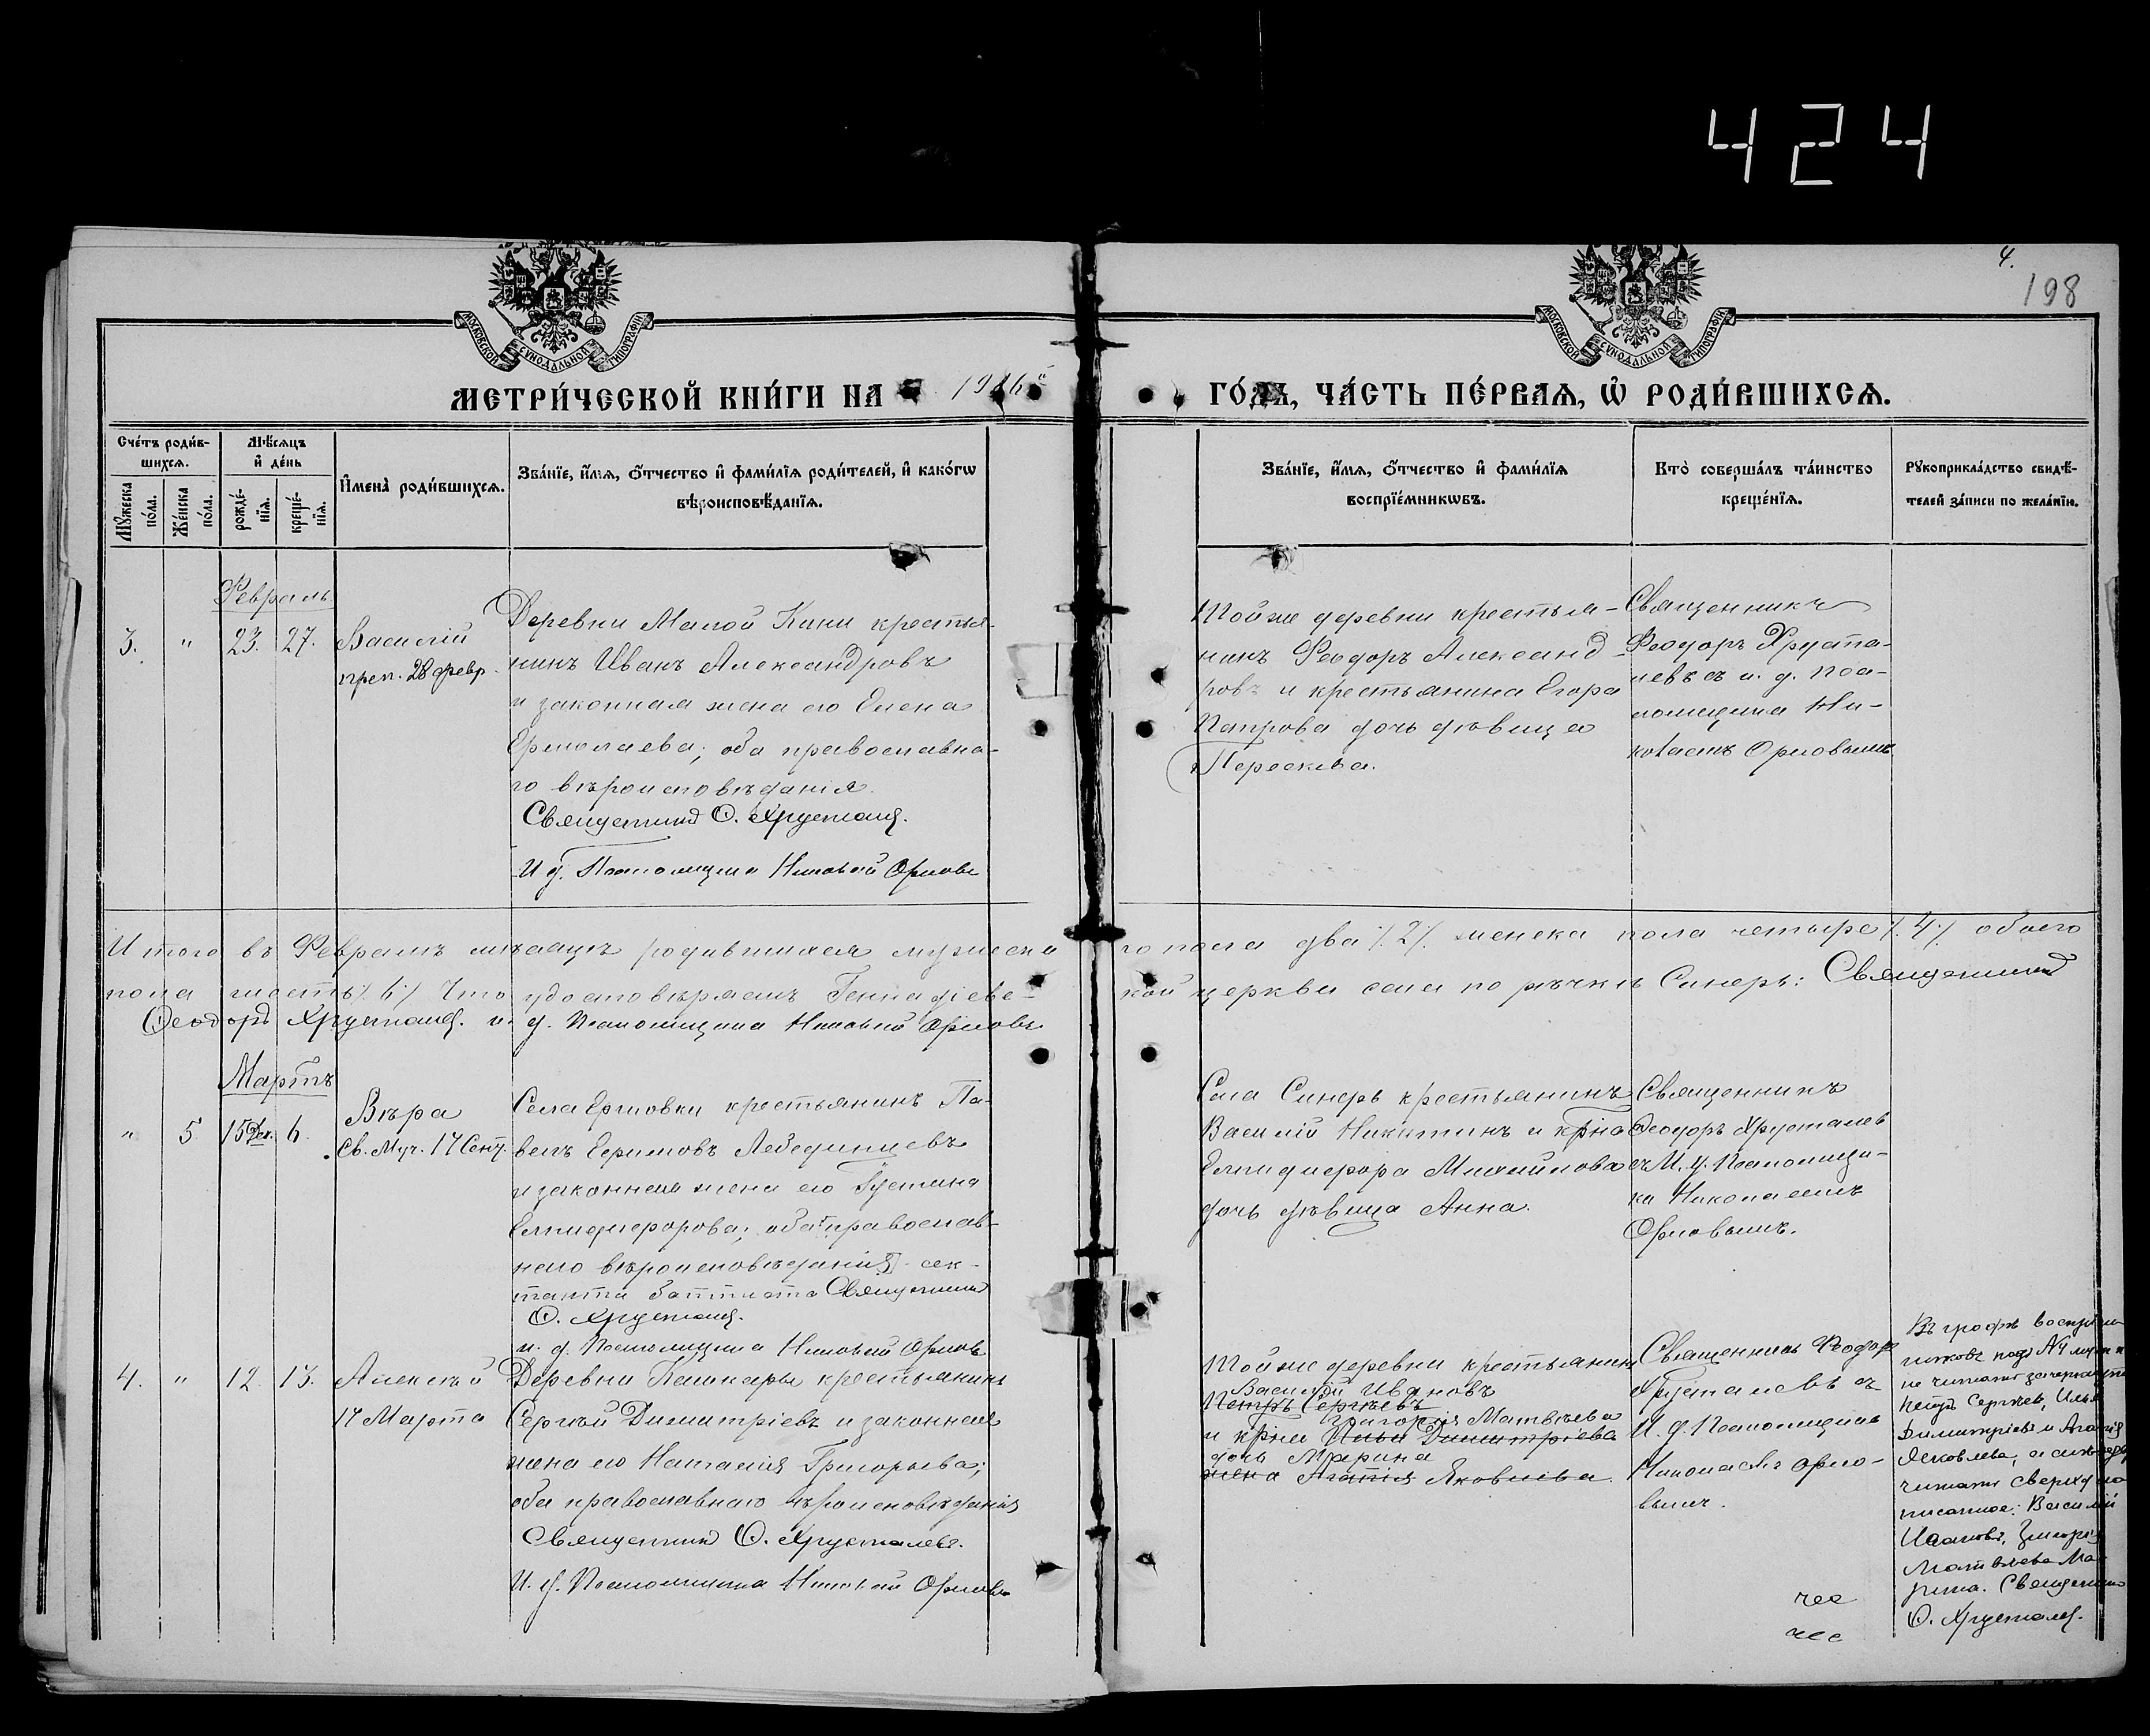 424
4.
198
МОСКОВСКОЙ СѴНОДАЛЬНОЙ ТИПОГРАФІИ
МОСКОВСКОЙ СѴНОДАЛЬНОЙ ТИПОГРАФІИ
МЕТРИ́ЧЕСКОЙ КНИ́ГИ НА 1916й ГО́ДЪ, ЧА́СТЬ ПЕ́РВАѦ, Ѡ҆ РОДИ́ВШИХСѦ.
Сче́тъ роди́в-
шихсѧ.
Мꙋ́жеска по́ла.
Же́нска по́ла.
Мѣ́сѧцъ
и҆ де́нь
рожде́-
нїѧ.
креще́-
нїѧ.
И҆мена̀ роди́вшихсѧ.
Зва́нїе, и҆́мѧ, ѻ҆́тчество и҆ фами́лїѧ роди́телей, и҆ како́гѡ
вѣроисповѣ́данїѧ.
Зва́нїе, и҆́мѧ, ѻ҆́тчество и҆ фами́лїѧ
воспрїе́мникѡвъ.
Кто̀ соверша́лъ та́инство
креще́нїѧ.
Рꙋкоприкла́дство свидѣ́-
телей за́писи по жела́нїю.
Февраль
3. " 23. 27.
Василій
преп. 28 февр.
Деревни Малой Кини крестья-
нинъ Иванъ Александровъ
и законная жена его Елена
Ермолаева; оба православна-
го вѣроисповѣданія.
Священникъ Ѳ. Хрусталев.
И д. Псаломщика Николай Орловъ
Той же деревни крестья-
нинъ Феодоръ Александ-
ровъ и крестьянина Егора
Петрова дочь дѣвица
Параскева.
Священникъ
Феодоръ Хруста-
левъ съ и. д. Пса-
ломщика Ни-
колаемъ Орловымъ
Итого въ Февралѣ мѣсяцѣ родившихся мужеска го пола два /2/ женска пола четыре /4/ обоего
пола шесть /6/ Что удостовѣряемъ Геннадіевс- кой церкви села по рѣчкѣ Синеръ: Священникъ
Ѳеодоръ Хрусталев. и. д. Псаломщика Николай Орловъ
Мартъ
" 5 15 Дек. 6.
Вѣра
Св. Муч. 17 Сент.
Села Ермовки крестьянинъ Па-
велъ Ефимовъ Лебединцевъ
и законная жена его Іустина
Елпидифорова; оба православ-
наго вѣроисповѣданія сек-
танты баптиста Священникъ
Ѳ. Хрусталев.
и. д. Псаломщика Николай Орловъ
Села Синеръ крестьянинъ
Василій Никитинъ и кр-на
Елпидифора Михайлова
дочь дѣвица Анна.
Священникъ
Ѳеодоръ Хрусталев
съ И. д. Псаломщи-
ка Николаемъ
Орловымъ.
4. " 12. 13.
Алексѣй
17 Марта
Деревни Кашкары крестьянинъ
Сергѣй Димитріевъ и законная
жена его Наталия Григорьева;
оба православнаго вѣроисповѣданія
Священникъ Ѳ. Хрусталевъ.
И. д. Псаломщика Николай Орловъ
Той же деревни крестьянинъ
Василій Ивановъ
Петръ Сергѣевъ
Григорія Матвѣева
и кр-на Ильи Димитріева
дочь Марина
жена Агафія Яковлева.
Священникъ Феодор
Хрусталевъ съ
И. д. Псаломщика
Николаемъ Орло-
вымъ.
Въ графѣ воспріем-
никовъ подъ №4
не читать зачеркнутое
Петръ Сергѣев, Илья
Димитріевъ и Агафія
Яковлева, а
читать сверху на-
писанное: Василій
Ивановъ, Григорія
Матвѣева Ма-
рина. Священникъ
Ѳ. Хрусталев.